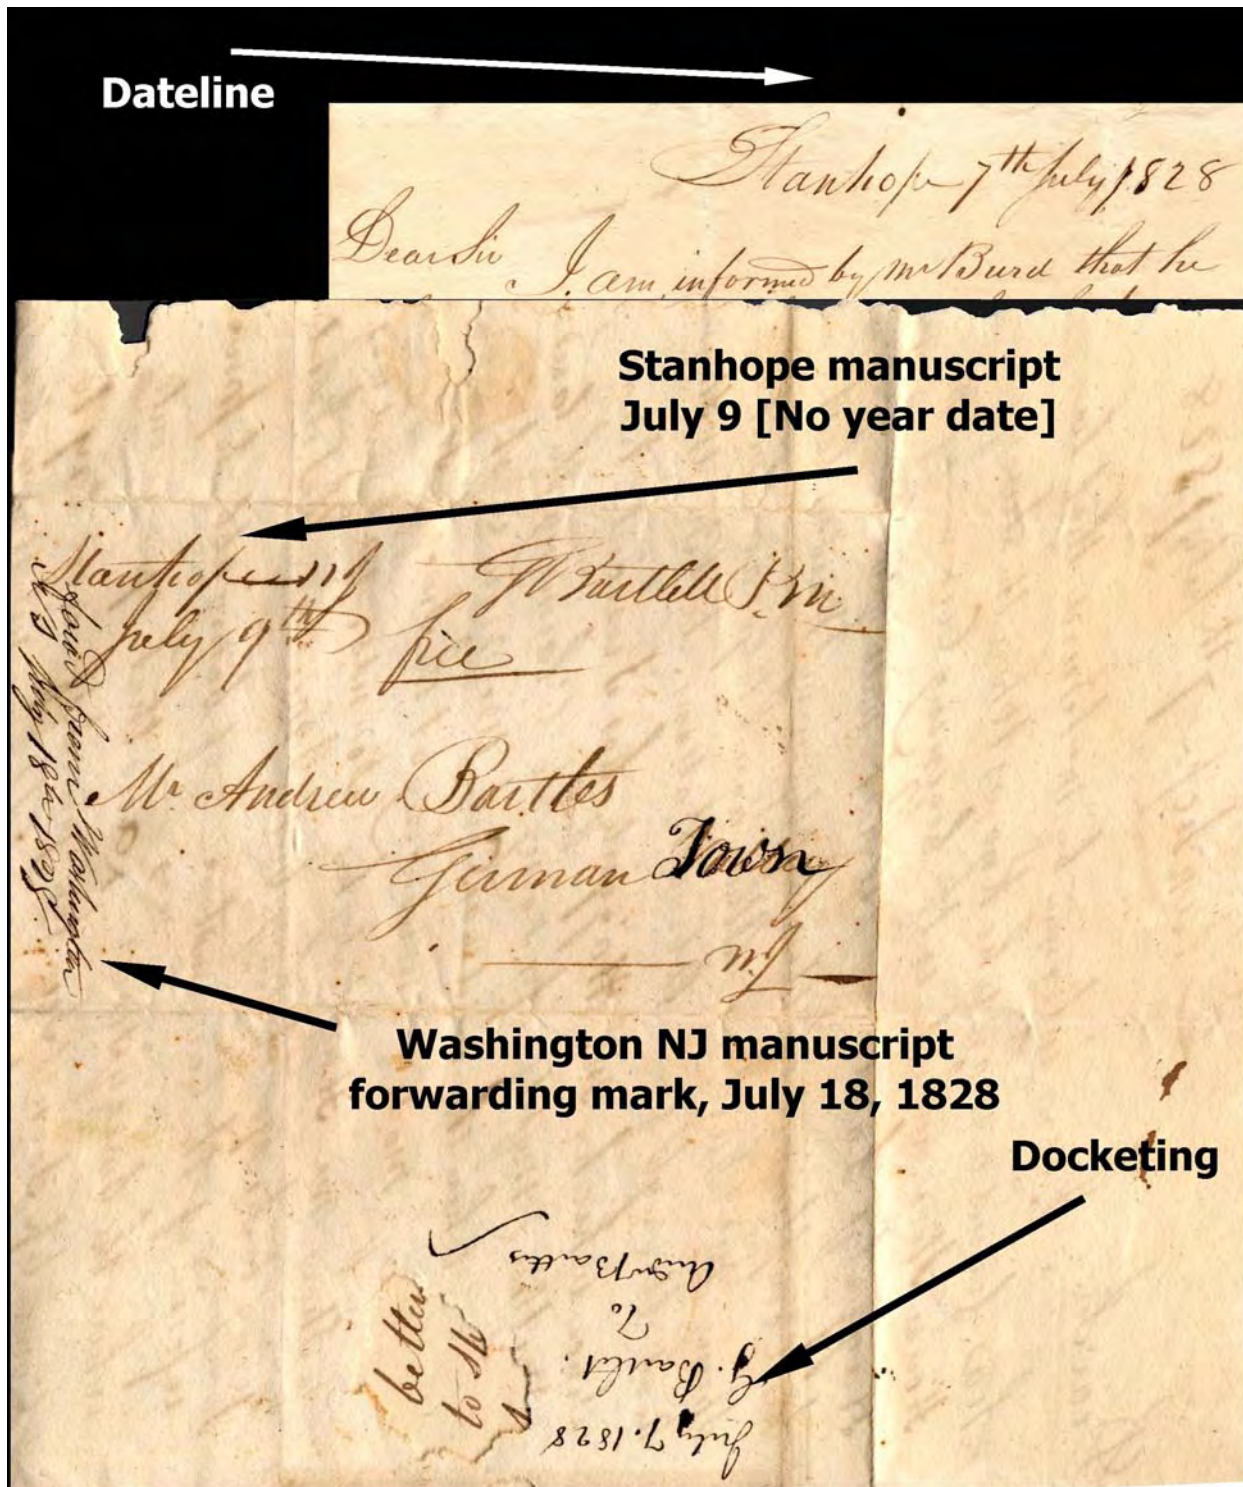 Dateline
Stanhope 7th July 1828
Dear Sir
I am informed by Mr Burd that he
Stanhope manuscript
July 9 [No year date]
Stanhope NJ
July 9th
G Bartlett P.M.
free
Forwd from Washington
NJ July 18th 1828
Mr Andrew Bartles
German Town
NJ
Washington NJ manuscript
forwarding mark, July 18, 1828
Docketing
July 7. 1828
G. Bartlet.
To
Andw Bartles
better
to